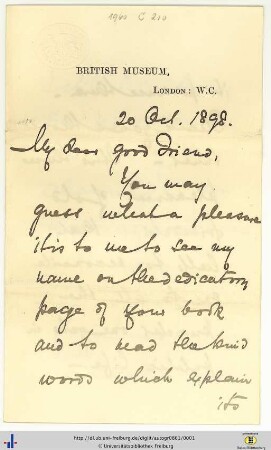 BRITISH MUSEUM,
LONDON: W.C.
20 Oct. 1898.
My dear good Friend,
You may
guess what a pleasure
it is to me to see my
name on the dedicatory
page of your book
and to read the kind
words which explain
its
http://dl.ub.uni-freiburg.de/diglit/autogr0801/0001
© Universitätsbibliothek Freiburg